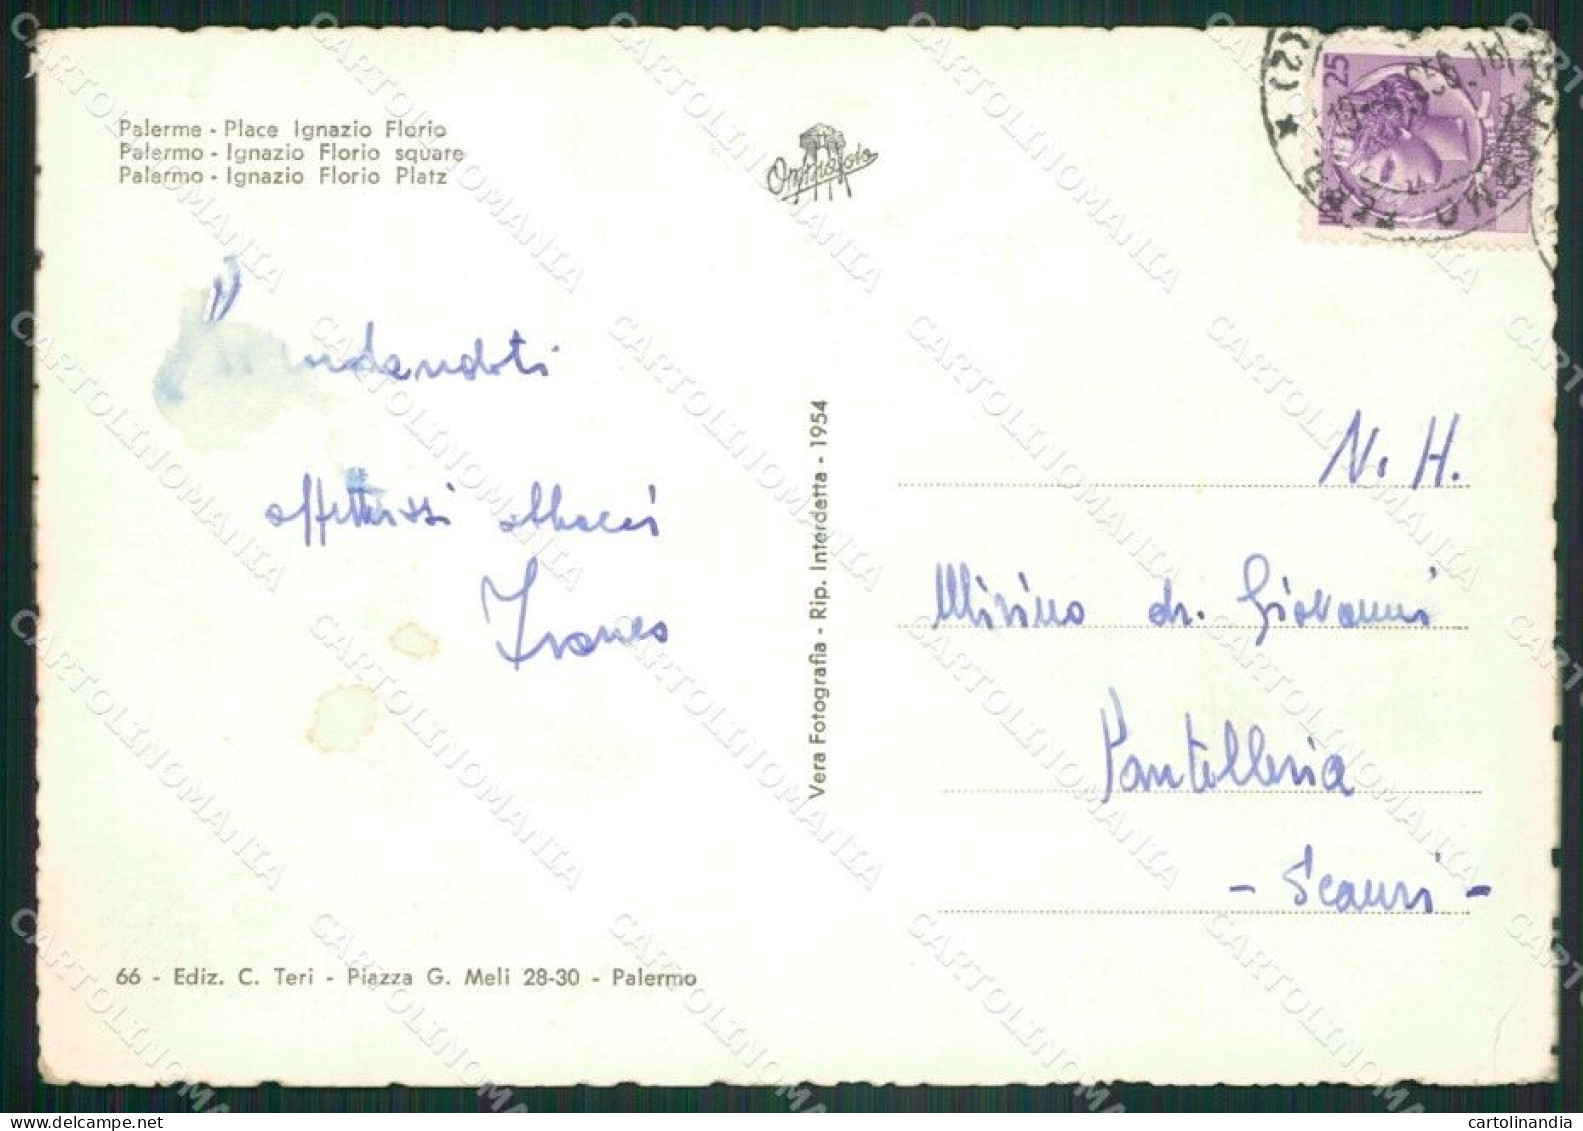 Palerme - Place Ignazio Florio
Palermo - Ignazio Florio square
Palermo - Ignazio Florio Platz
25
Ricordandoti
affettuosi abbracci
Franco
Vera Fotografia - Rip. Interdetta - 1954
N. H.
Misino dr. Giovanni
Pantelleria
- Scauri -
66 - Ediz. C. Teri - Piazza G. Meli 28-30 - Palermo
CARTOLINOMANIA
cartolinandia